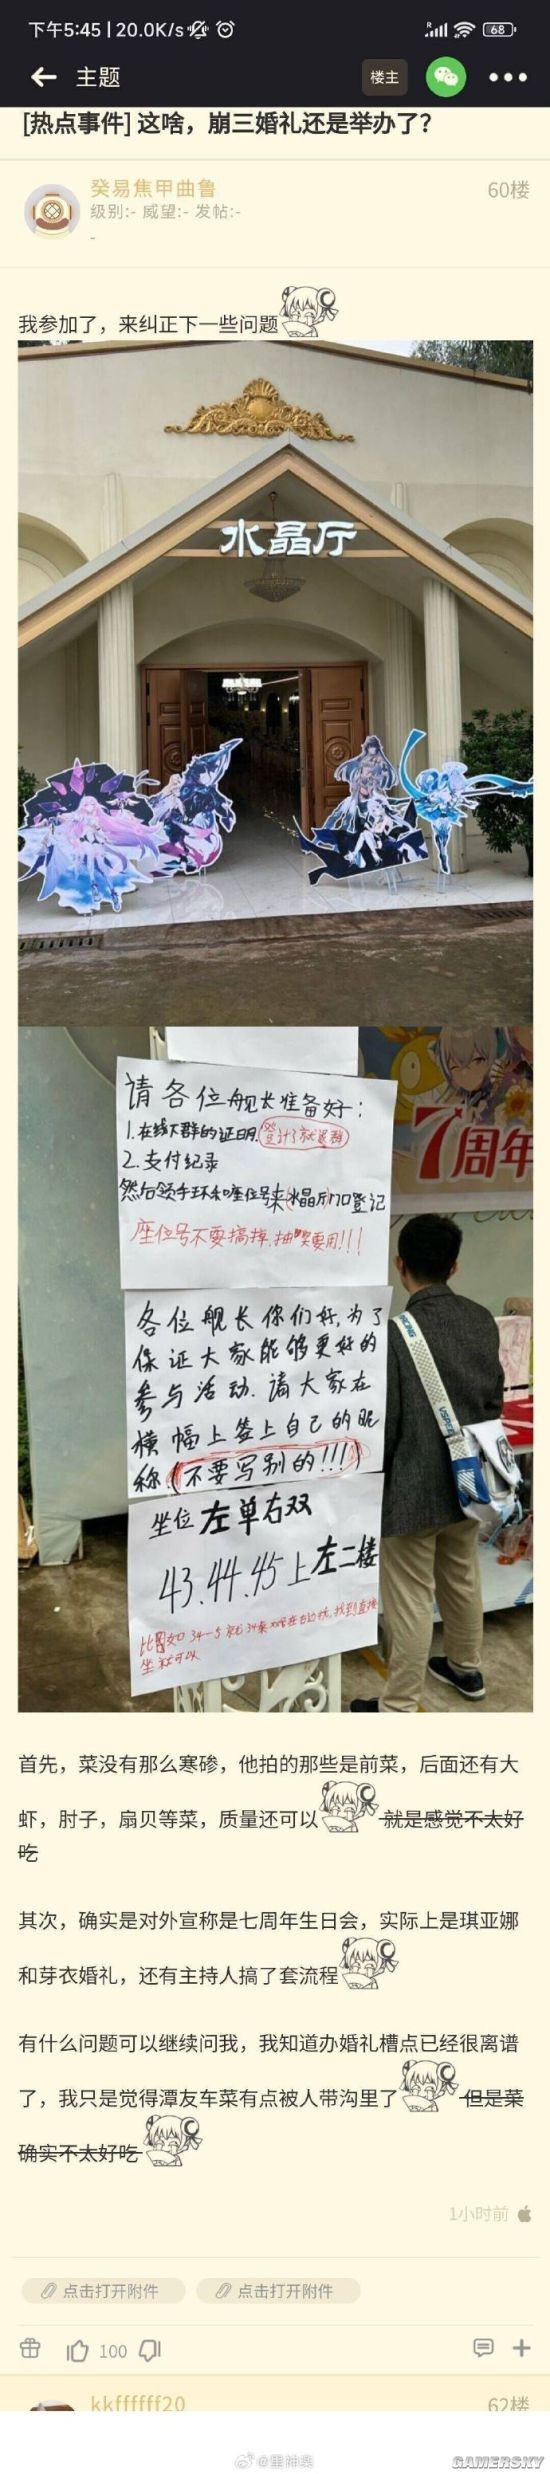 下午5:45 | 20.0K/s
68
主题
楼主
[热点事件] 这啥，崩三婚礼还是举办了？
癸易焦甲曲鲁
60楼
级别:- 威望:- 发帖:-
-
我参加了，来纠正下一些问题
水晶厅
请各位舰长准备好：
1.在线下群的证明.(登记了就退群)
2.支付纪录
然后领手环和座位号来水晶厅门口登记
座位号不要搞掉.抽奖要用!!!
7周年
各位舰长你们好,为了
保证大家能够更好的
参与活动.请大家在
横幅上签上自己的昵
称.(不要写别的!!!)
坐位左单右双
43.44.45上左二楼
坐就可以
首先，菜没有那么寒碜，他拍的那些是前菜，后面还有大
虾，肘子，扇贝等菜，质量还可以 就是感觉不太好
吃
其次，确实是对外宣称是七周年生日会，实际上是琪亚娜
和芽衣婚礼，还有主持人搞了套流程
有什么问题可以继续问我，我知道办婚礼槽点已经很离谱
了，我只是觉得潭友车菜有点被人带沟里了 但是菜
确实不太好吃
1小时前
点击打开附件 点击打开附件
100
kkffffff20
62楼
@里神楽
GAMERSKY